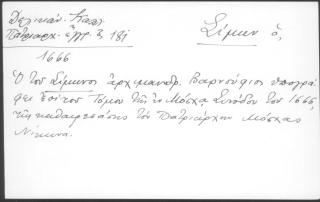 Δελικάν. Καλλ.
Πατριαρχ. ἔγγρ. 3, 181
Σίμων ὁ,
1666
Ὁ τοῦ Σίμωνος ἀρχιμανδρ. Βαρνούφιος ὑπογρά
φει ἐπὶ τοῦ Τόμου τῆς ἐν Μόσχᾳ Συνόδου τοῦ 1666,
τῆς καθαιρεσάσης τὸν Πατριάρχην Μόσχας
Νίκωνα.